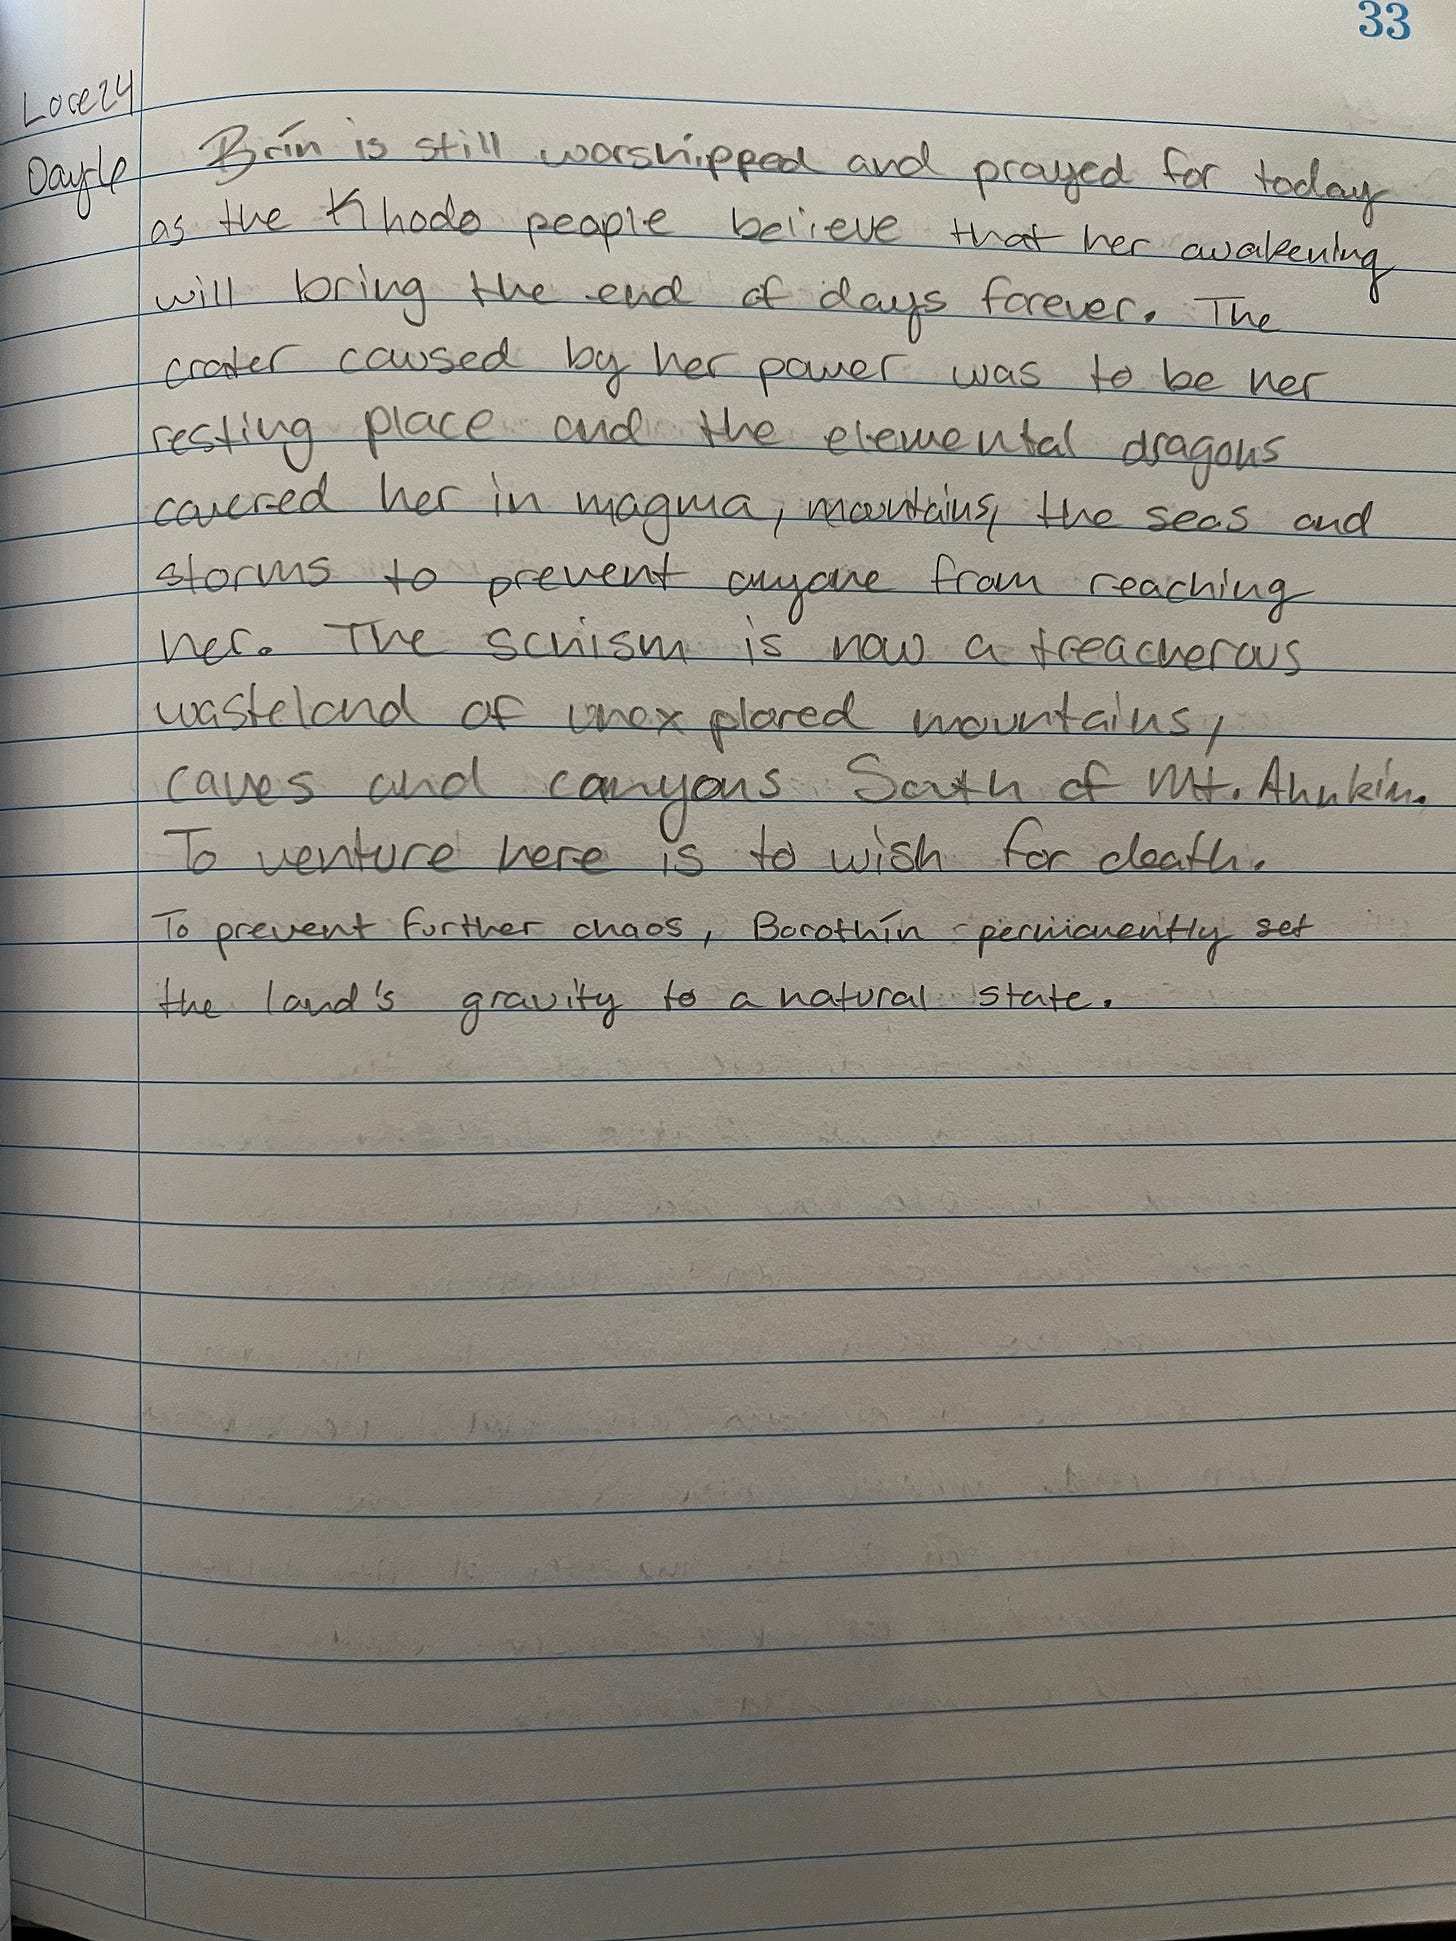 33
Lore24
Dayle
Brín is still worshipped and prayed for today
as the Khodo people believe that her awakening
will bring the end of days forever. The
crater caused by her power was to be her
resting place and the elemental dragons
covered her in magma, mountains, the seas and
storms to prevent anyone from reaching
her. The schism is now a treacherous
wasteland of unexplored mountains,
caves and canyons South of Mt. Ahnkín.
To venture here is to wish for death.
To prevent further chaos, Borothín permanently set
the land's gravity to a natural state.